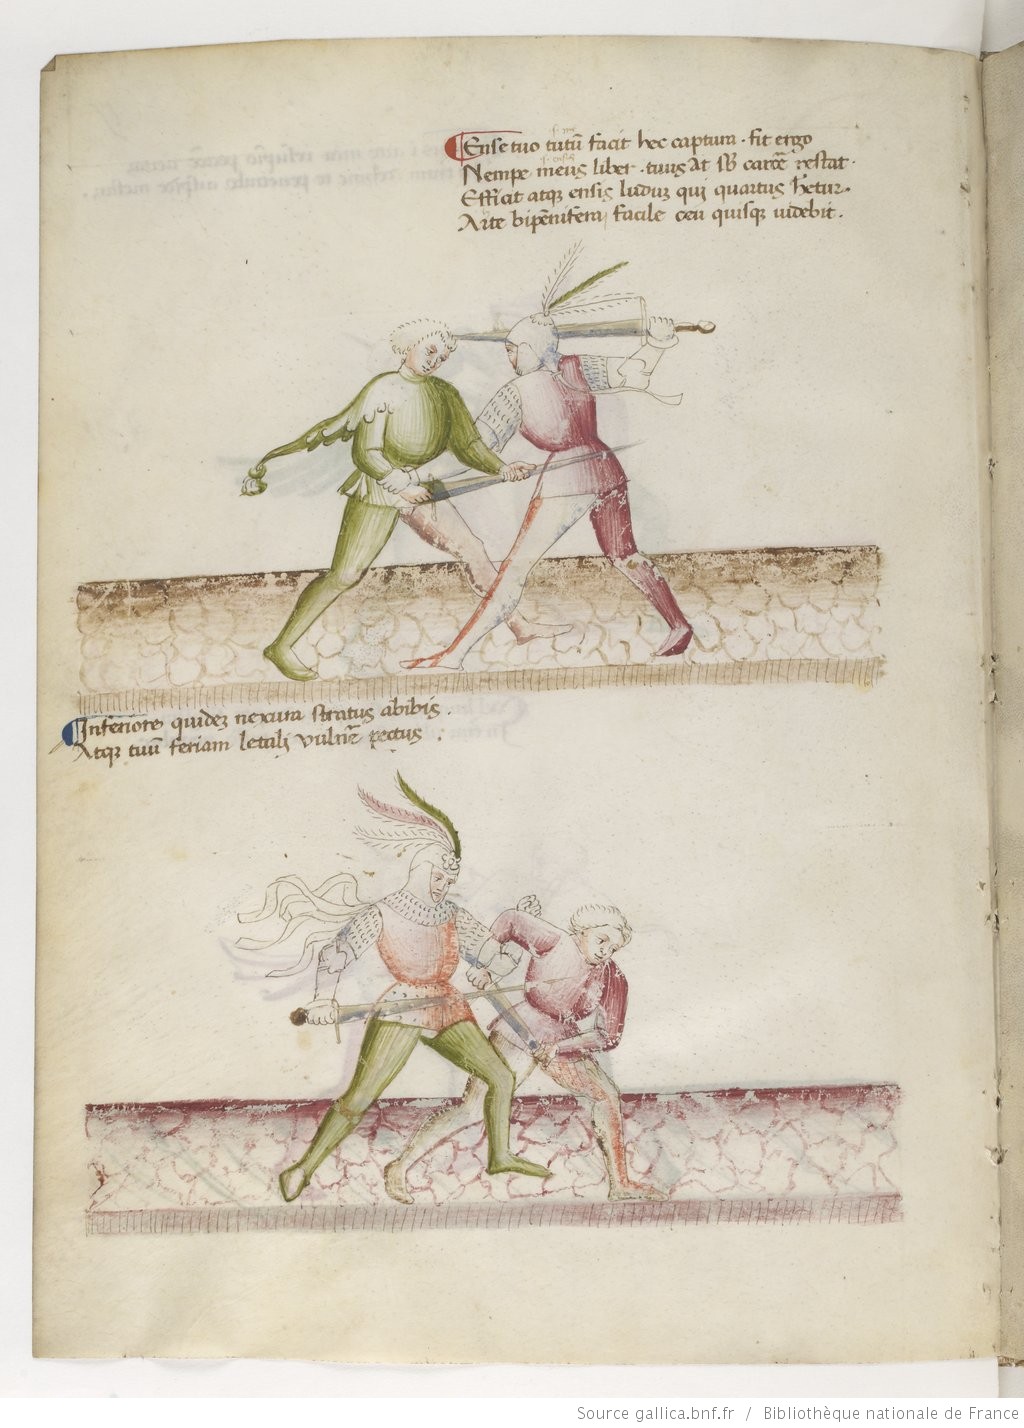 Ense tuo tutũ facit hec captura · fit ergo
Nempe meus liber · tuus at sB carcẽ restat ·
Efficit atqȝ ensis ludus qui quartus hetur ·
Arte bipẽnifera facile ceu quisqȝ uidebit ·
Inferiore quideȝ nexura stratus abibis ·
Atqȝ tuũ feriam letali vulnẽ pectus ·
Source gallica.bnf.fr / Bibliothèque nationale de France